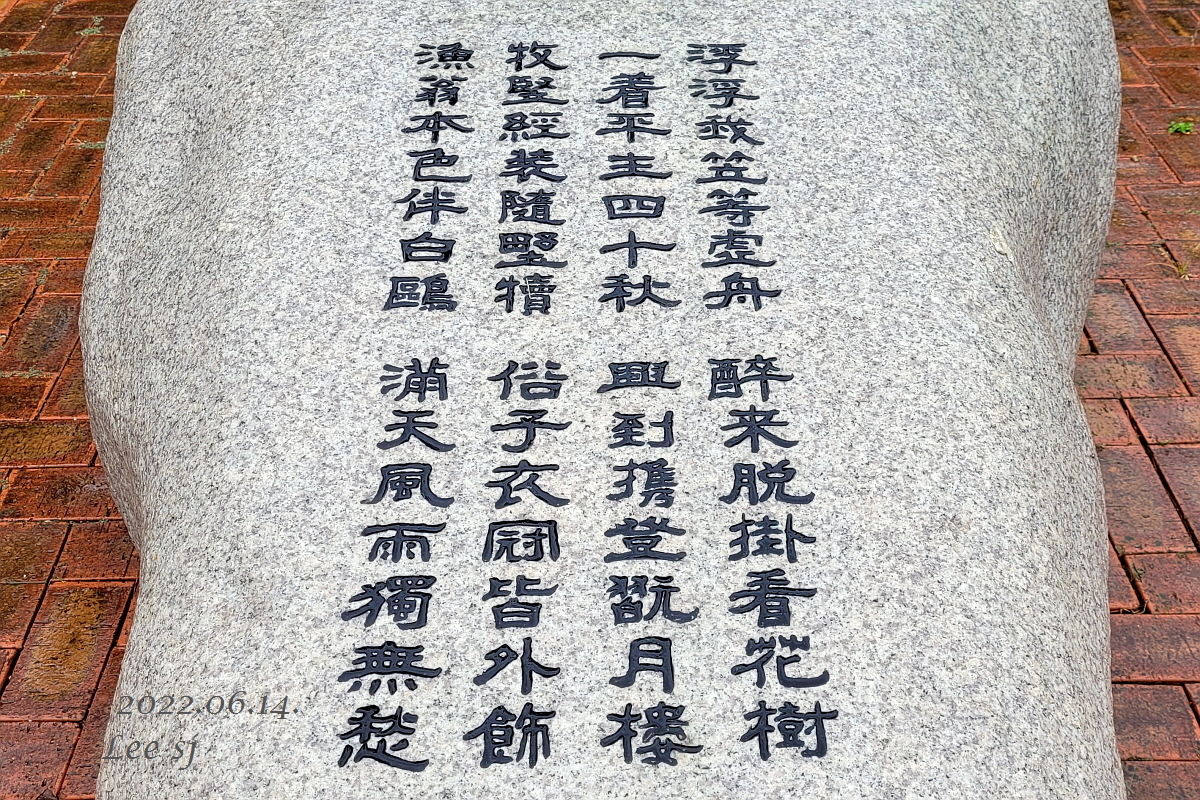 浮浮我笠等虛舟
一着平主四十秋
牧竪經装隨墅犢
漁翁本色伴白鷗
醉来脱掛看花樹
興到携登翫月樓
俗子衣冠皆外飾
滿天風雨獨無愁
2022.06.14.
Lee sj